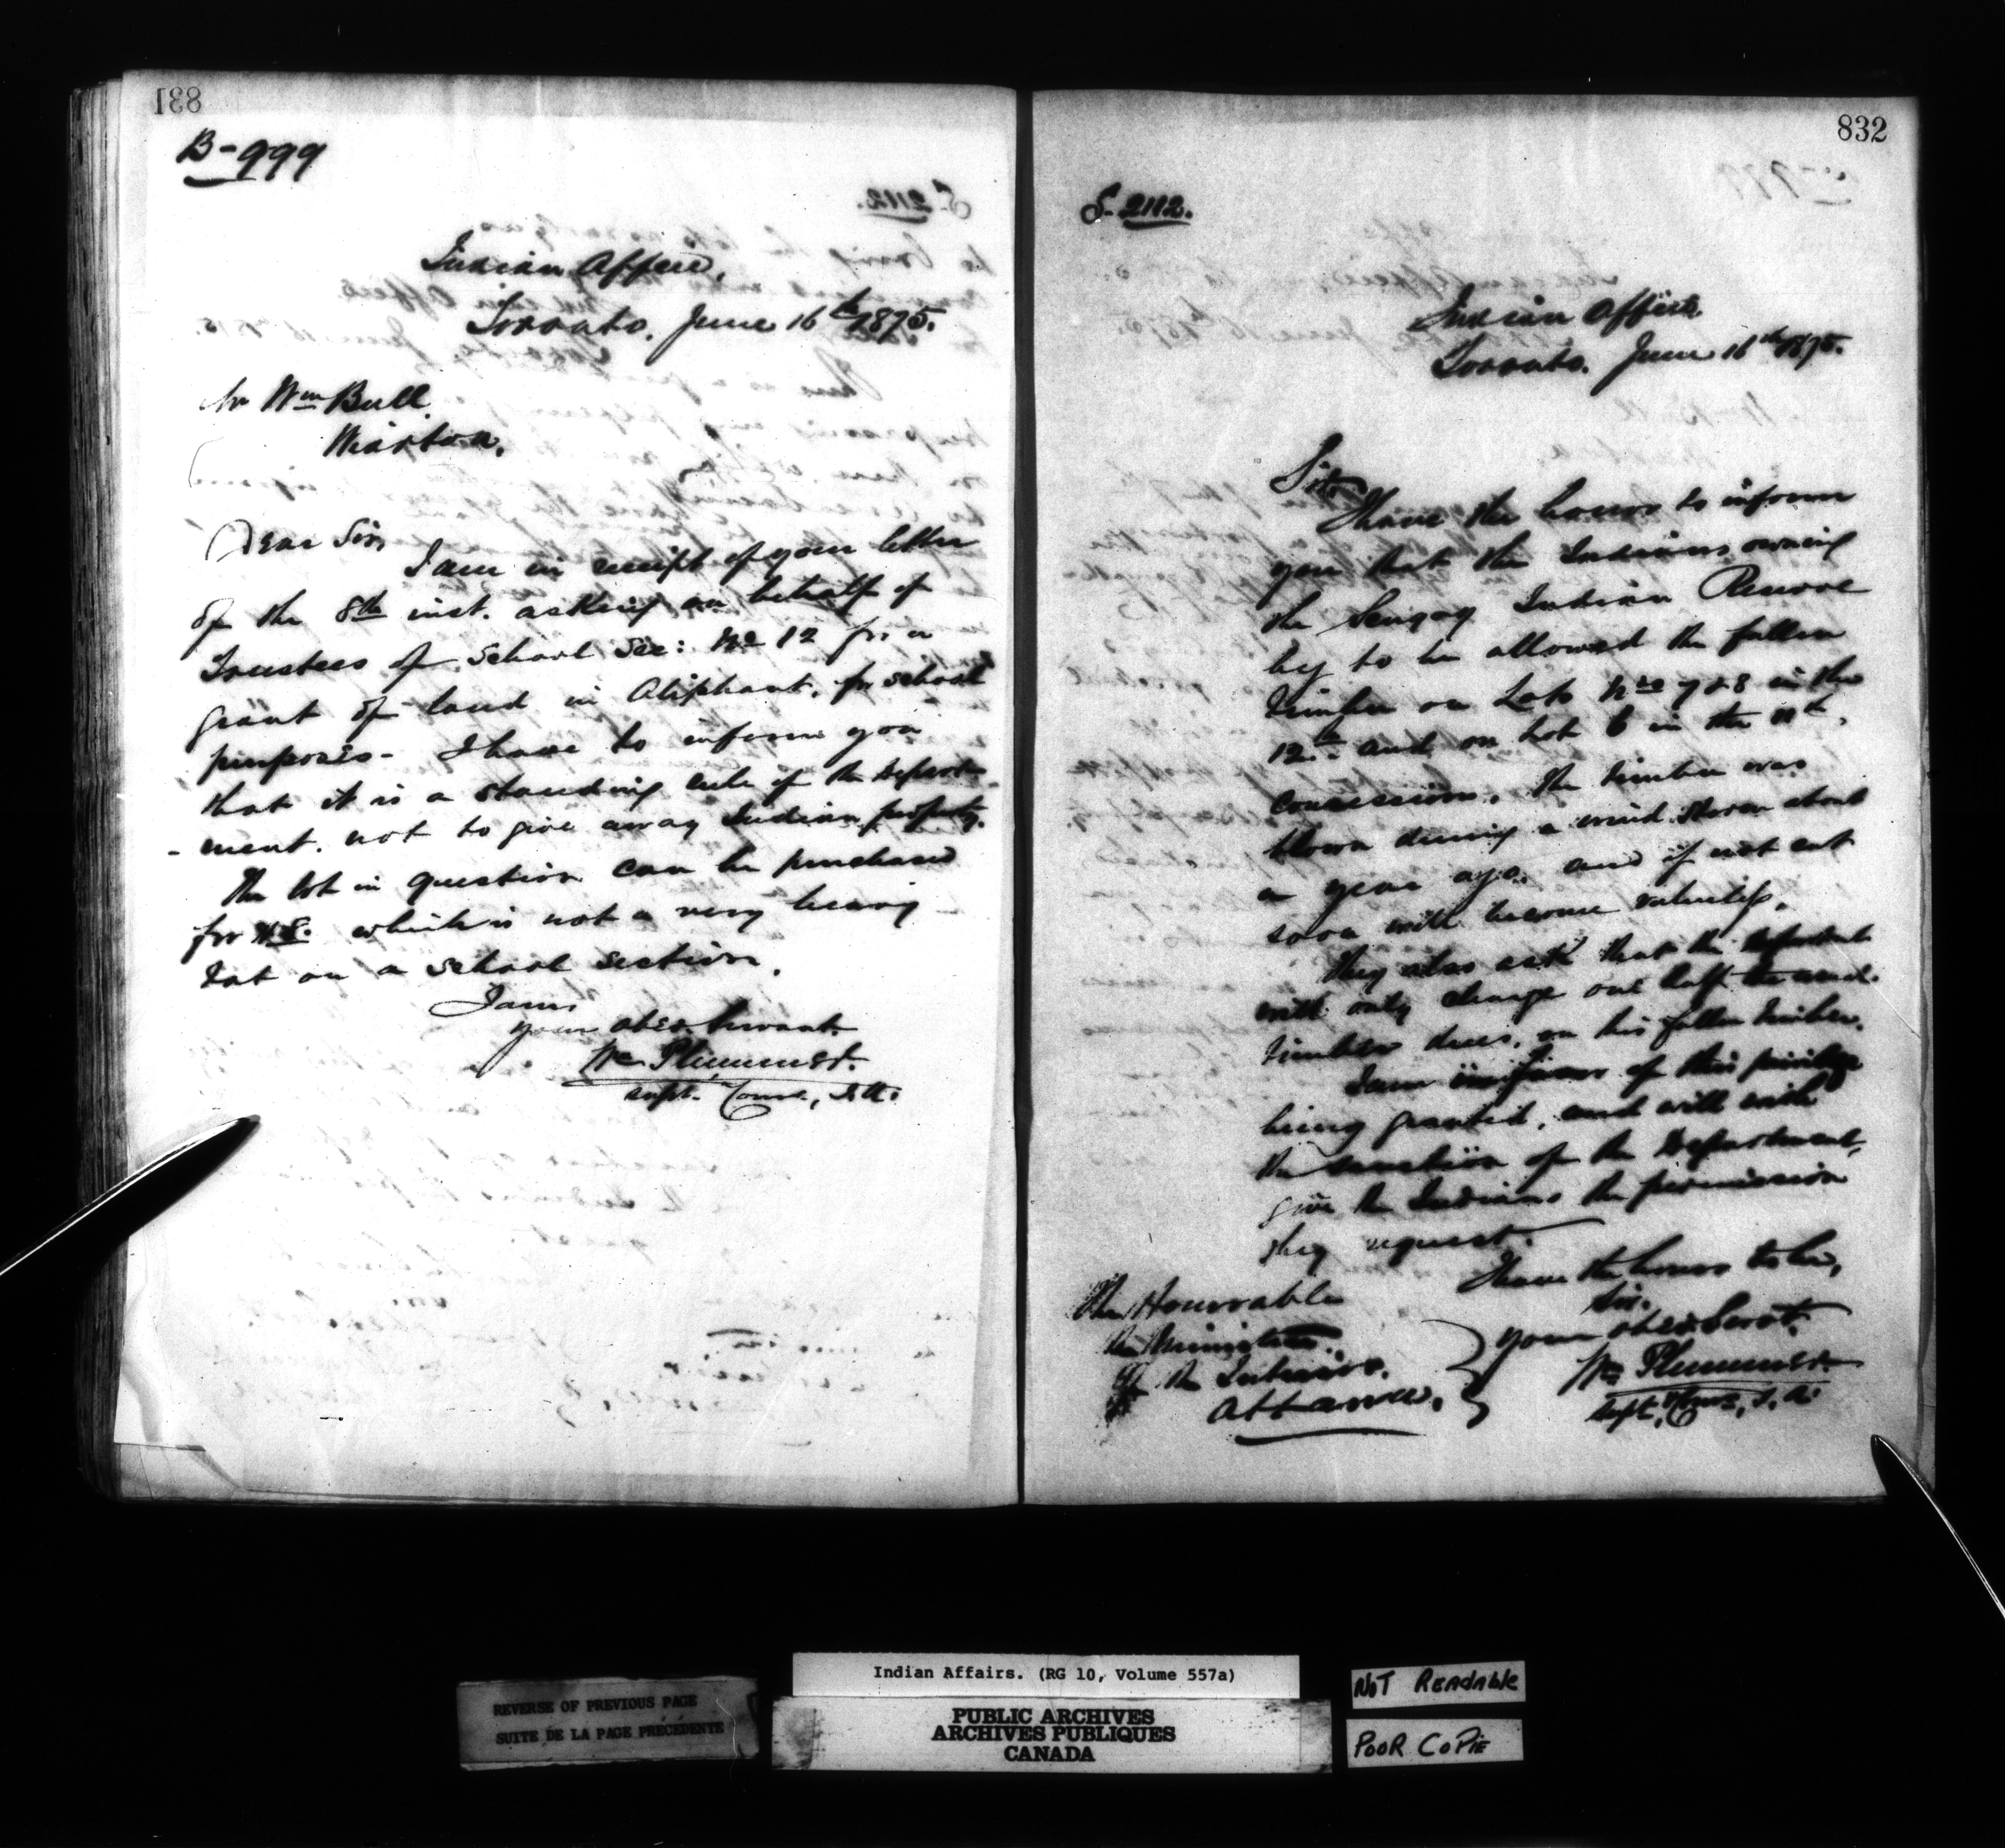 831
B-999
Indian Office,
Toronto, June 16th 1875.
Mr Wm Bull
Wiarton,
Dear Sir,
I am in receipt of your letter
of the 8th inst. asking on behalf of
Trustees of School Sec: No 12 for a
grant of land in Oliphant, for school
purposes - I have to inform you
that it is a standing rule of the Depart
-ment. not to give away Indian property.
The lot in question can be purchased
for which is not a very heavy
tax on a school section.
I am,
your obed servant.
Wm Plummer.
Supt. Comr, I.A.
832
S-2112.
Indian Office
Toronto. June 16th 1875.
Sir,
I have the honor to inform
you that the Indians owning
the Indian Reserve
beg to be allowed the fallen
timber on Lots Nos 7 & 8 in the
12th and on Lot 6 in the 11th.
concession. The timber was
blown during a wind storm about
a year ago. and if not cut
soon will become valueless.
They also ask that the Department
will only charge one half the usual
timber dues, on this fallen timber.
I am in favor of this privilege
being granted, and will with
the sanction of the Department,
give the Indians the permission
they request.
I have the honor to be,
Sir.
Your obed Servt.
Wm Plummer
Supt. Comr, I.A.
The Honorable
the Minister
of the Interior.
Ottawa.
Indian Affairs. (RG 10, Volume 557a)
REVERSE OF PREVIOUS PAGE
SUITE DE LA PAGE PRÉCÉDENTE
PUBLIC ARCHIVES
ARCHIVES PUBLIQUES
CANADA
NOT READABLE
POOR COPIE